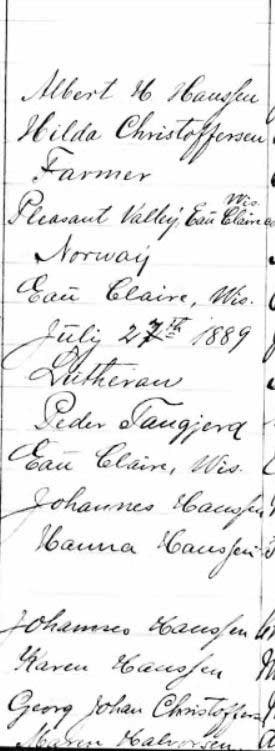 Albert H Hanssen
Hilda Christoffersen
Farmer
Wis.
Pleasant Valley, Eau Claire
Norway
Eau Claire, Wis.
July 27th 1889
Lutheran
Peder Tangjerd
Eau Claire, Wis.
Johannes Hanssen
Hanna Hanssen
Johannes Hanssen
Karen Hanssen
Georg Johan Christoffers
Maren Halvorsen